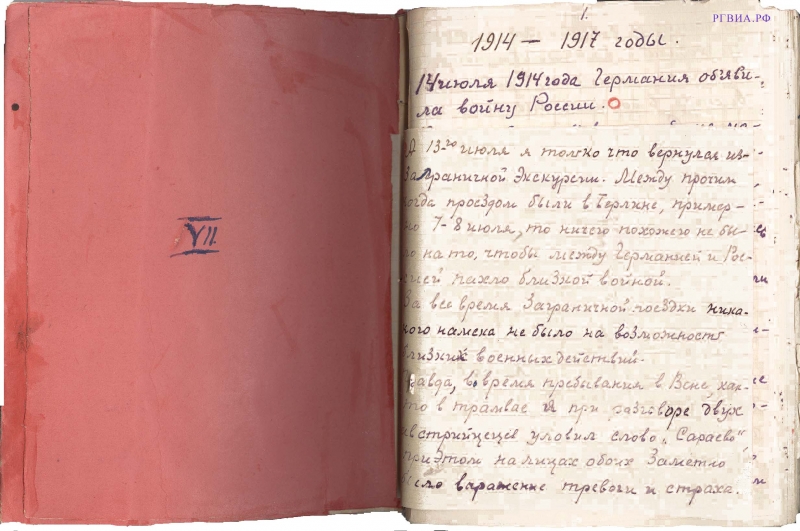 РГВИА.РФ
VII.
1.
1914 — 1917 годы.
14 июля 1914 года Германия объяви-
ла войну России.
А 13-го июля я только что вернулся из-
Заграничной Экскурсии. Между прочим
когда проездом были в Берлине, пример-
но 7-8 июля, то ничего похожего не бы-
ло на то, чтобы между Германией и Рос-
сией пахло близкой войной.
За все время Заграничной поездки ника-
кого намека не было на возможность
близких военных действий.
Правда, во время пребывания в Вене, как-
то в трамвае я при разговоре двух
австрийцев уловил слово "Сараево",
при этом на лицах обоих Заметно
было выражение тревоги и страха.